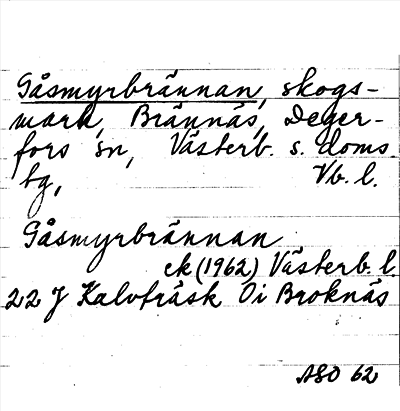 Gåsmyrbrännan, skogs-
mark, Brännäs, Deger-
fors sn, Västerb. s. doms.
tg, Vb. l.
Gåsmyrbrännan
ek (1962) Västerb. l.
22 J Kalvträsk Oi Broknäs
ASO 62